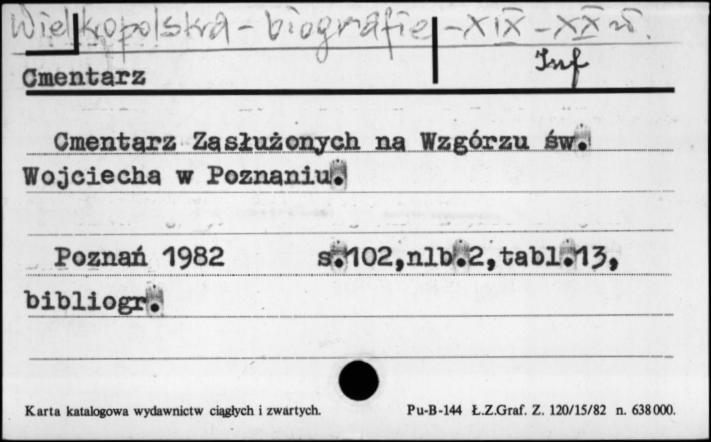 Wielkopolska - biografie - XIX - XX w.
Inf
Cmentarz
Cmentarz Zasłużonych na Wzgórzu św.
Wojciecha w Poznaniu.
Poznań 1982 s.102,nlb.2,tabl.13,
bibliogr.
Karta katalogowa wydawnictw ciągłych i zwartych. Pu-B-144 Ł.Z.Graf. Z. 120/15/82 n. 638000.